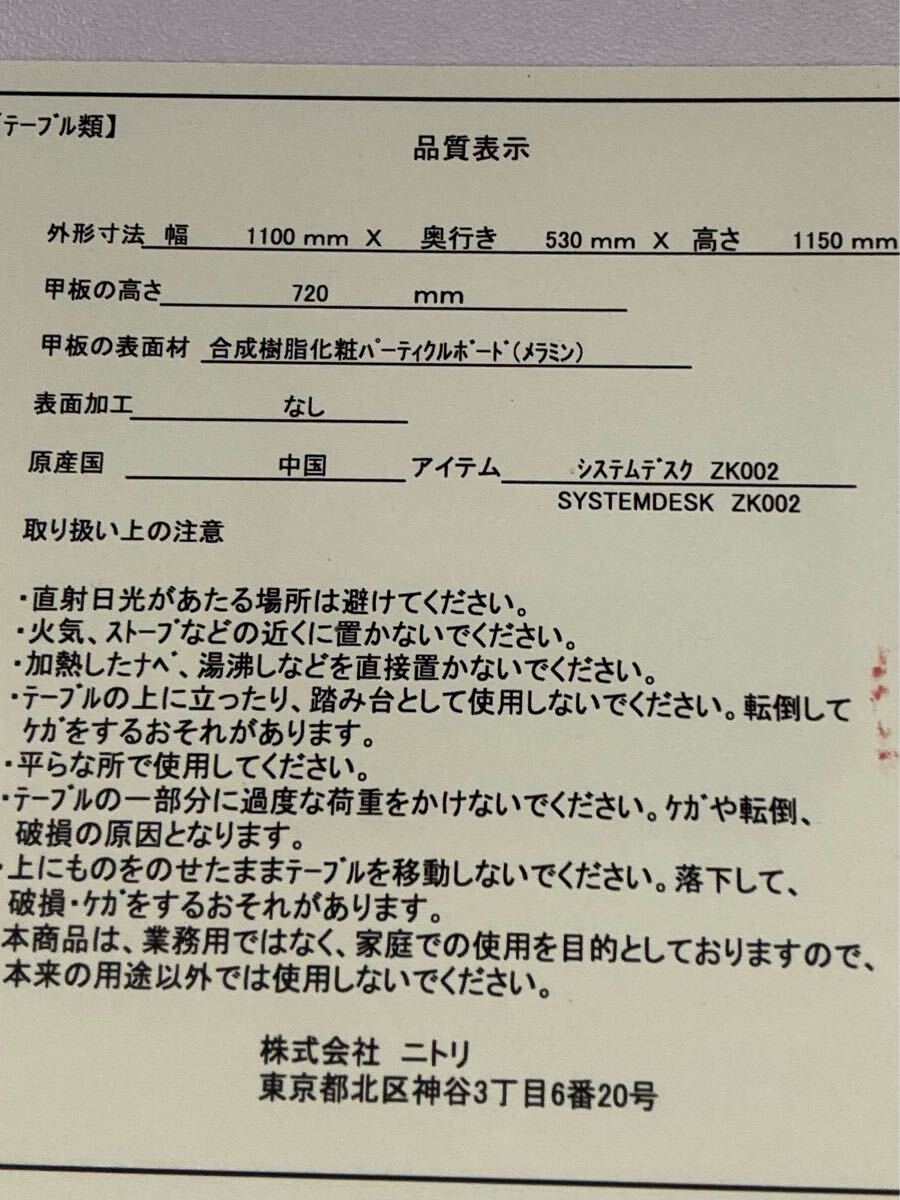 テーブル類】
品質表示
外形寸法 幅 1100 mm X 奥行き 530 mm X 高さ 1150 mm
甲板の高さ 720 mm
甲板の表面材 合成樹脂化粧ﾊﾟｰﾃｨｸﾙﾎﾞｰﾄﾞ(ﾒﾗﾐﾝ)
表面加工 なし
原産国 中国 アイテム ｼｽﾃﾑﾃﾞｽｸ ZK002
SYSTEMDESK ZK002
取り扱い上の注意
・直射日光があたる場所は避けてください。
・火気、ｽﾄｰﾌﾞなどの近くに置かないでください。
・加熱したﾅﾍﾞ、湯沸しなどを直接置かないでください。
・ﾃｰﾌﾞﾙの上に立ったり、踏み台として使用しないでください。転倒して
ｹｶﾞをするおそれがあります。
・平らな所で使用してください。
・ﾃｰﾌﾞﾙの一部分に過度な荷重をかけないでください。ｹｶﾞや転倒、
破損の原因となります。
・上にものをのせたままﾃｰﾌﾞﾙを移動しないでください。落下して、
破損・ｹｶﾞをするおそれがあります。
本商品は、業務用ではなく、家庭での使用を目的としておりますので、
本来の用途以外では使用しないでください。
株式会社 ニトリ
東京都北区神谷3丁目6番20号